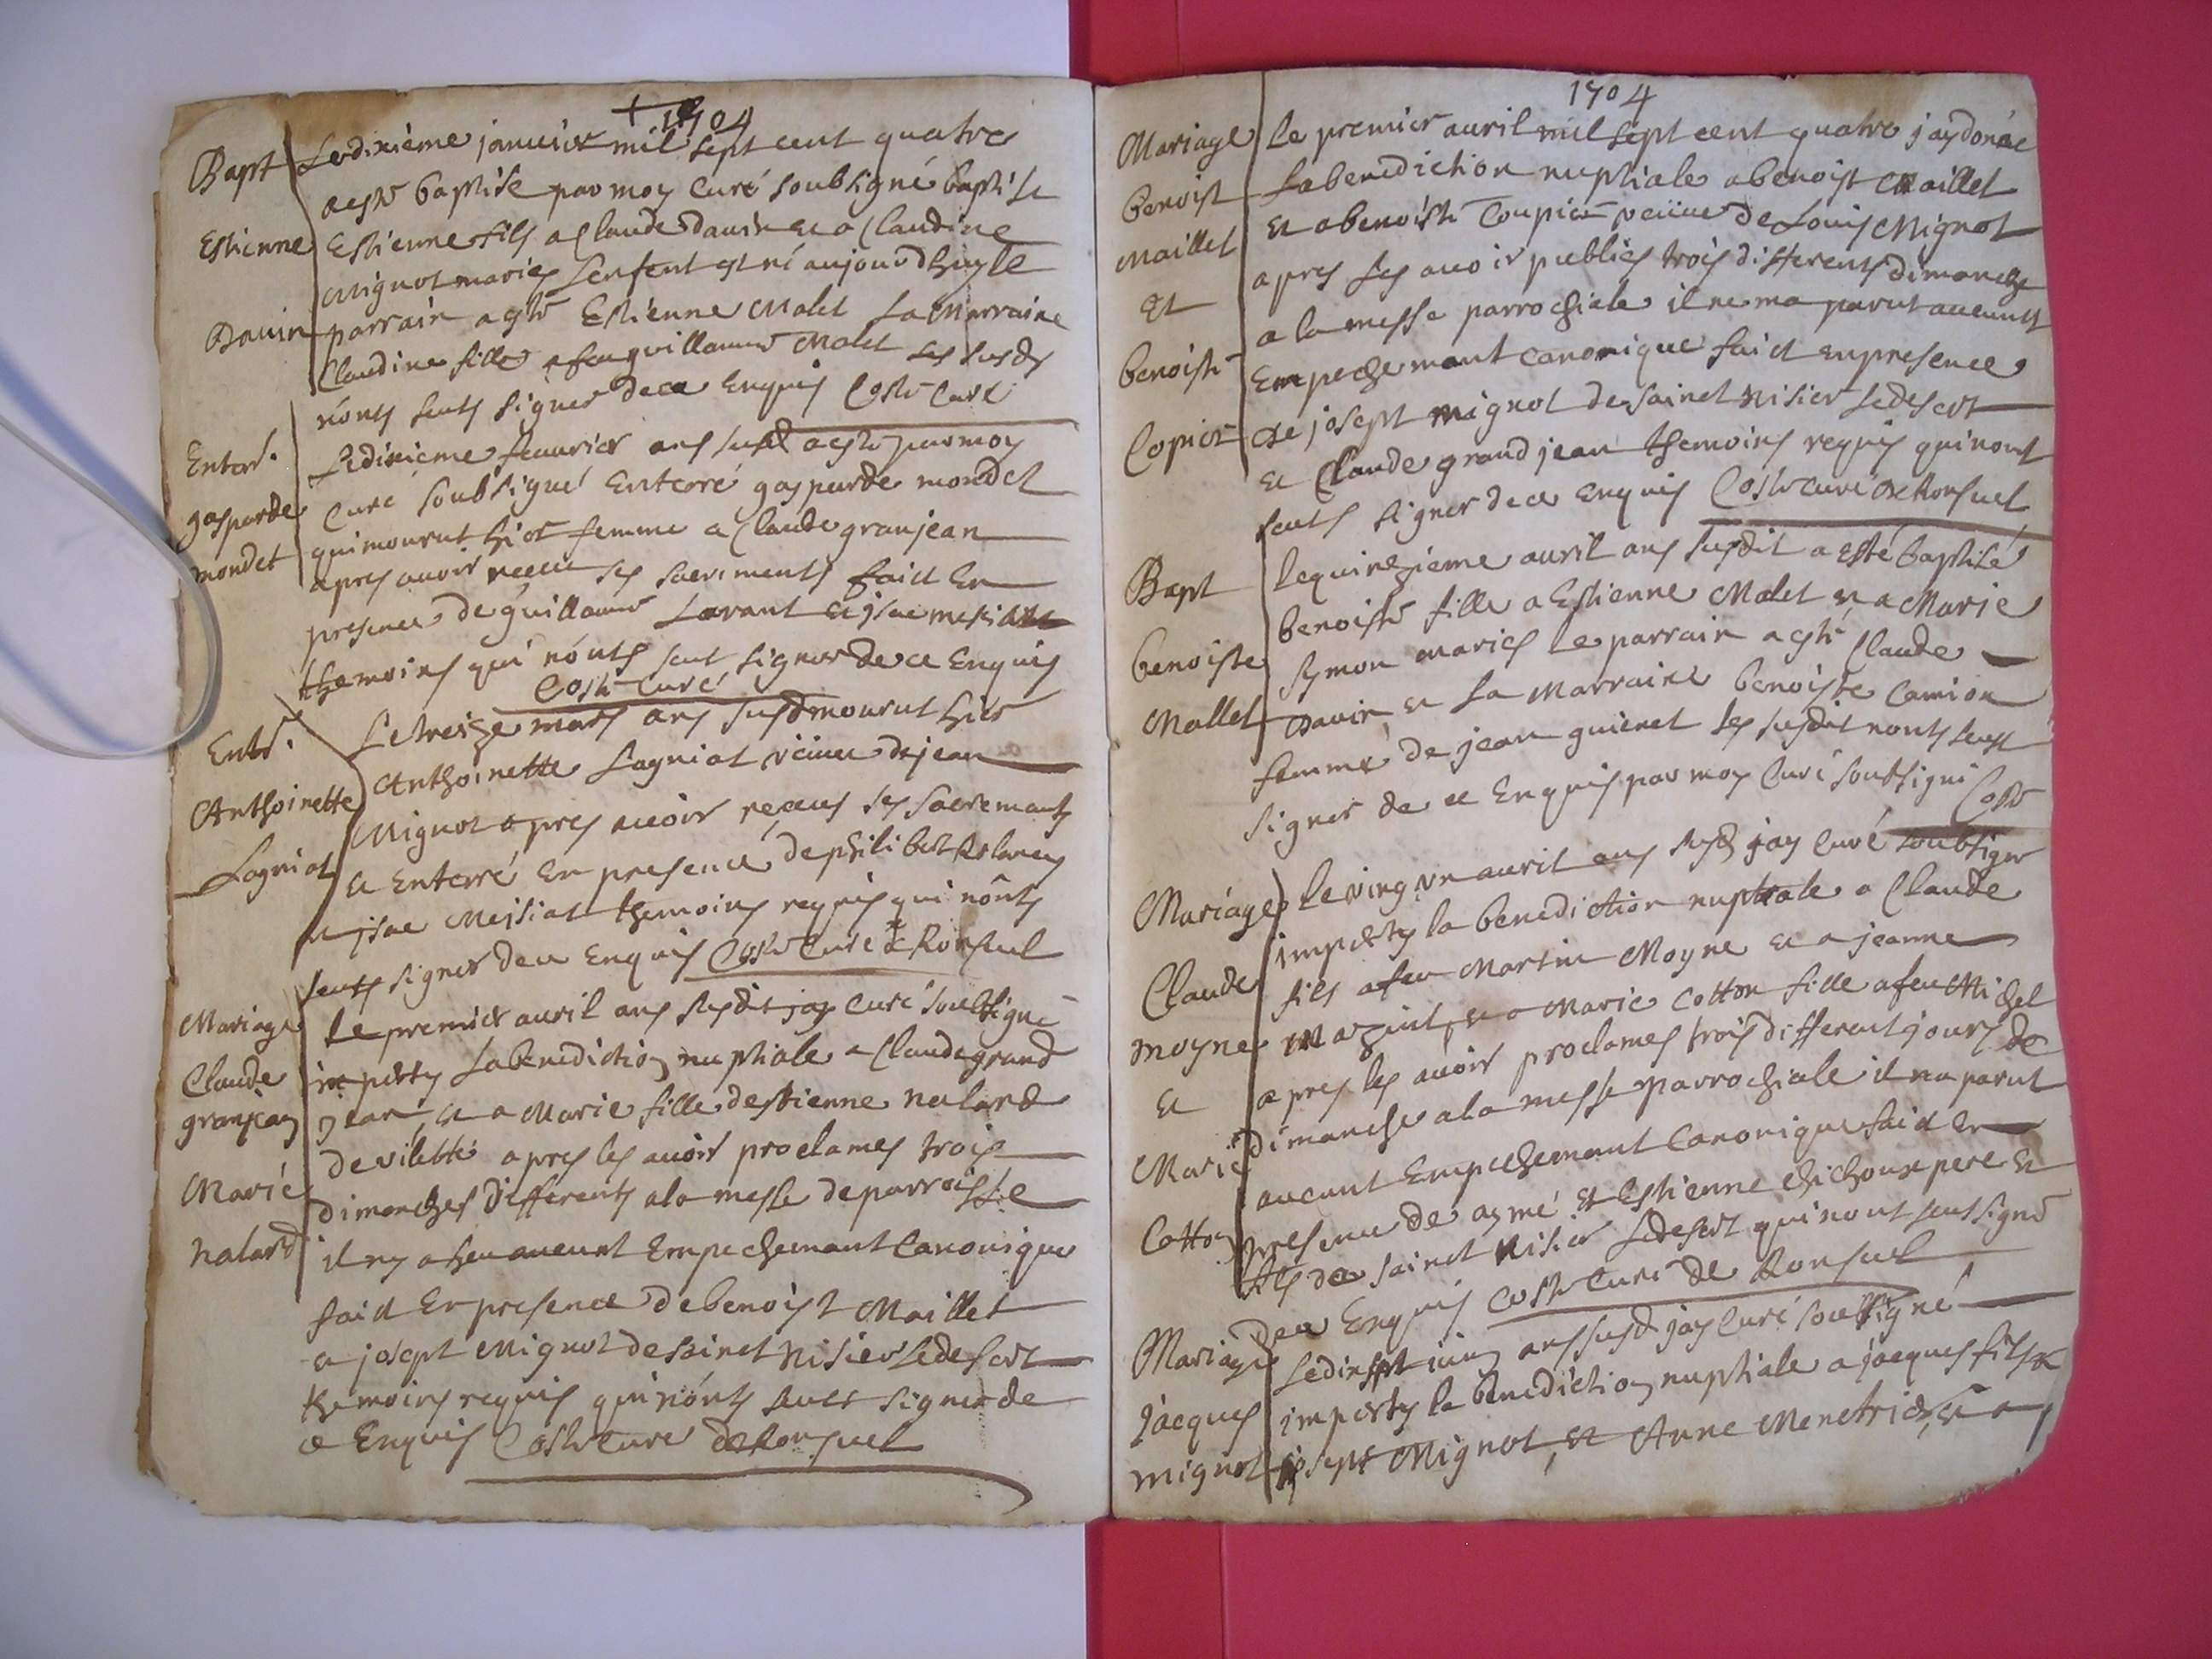 + 1704
Bapt Le dixième januier mil sept cent quatre
a esté baptise par moy Curé soubsigné baptise
Estienne Estienne fils a Claude dauin et a Claudine
Mignot mariés lenfent est né aujourdhuy le
Dauin parrain a esté Estienne Malet La Marraine
Claudine fille a feu guillaume Malet les susds
nonts seuts signer de ce Enquis Coste Curé
Enterr. Le dixieme feuurier ans susd a esté par moy
Curé soubsigné Enterré gasparde mondet
gasparde qui mourut hier femme a Claude granjean
mondet apres auoir receu ses sacriments faict En
presence de guillaume Lavant et jsac
themoins qui nónts seut signer de ce Enquis
Coste Curé
Entr. Le treize mars ans susd mourut hier
Anthoinette Anthoinette Lagniat véiuue de jean
Mignot apres auoir receus ses sacremants
Lagniat et Enterré En presence de philibert
et jsac Meisiat themoins requis qui nônts
seuts signer de ce Enquis Coste Curé de Ronsuel
Mariage Le premier auril ans susdit jay Curé soubsigné
Claude imperty La benediction nuptiale a Claude grand
granjean jean et a Marie fille destienne nalard
de vilette apres les auoir proclames trois
Marié dimanches differents a la messe de parroisse
nalard il ny a heu aucunt Empechemant Canonique
faict En presence de benoist Maillet
et josept Mignot de sainct nisier le desert
themoins requis qui nónts seuts signer de
ce Enquis Coste Curé de Ronsuel
1704
Mariage Le premier auril mil sept cent quatre jay donée
benoist La benediction nuptiale a benoist Maillet
maillet et a benoiste Coupier veiiue de Louis Mignot
apres les auoir publiés trois differents dimanche
et a la messe parrochiale il ne ma parut aucunt
benoiste Empechemant canonique faict en presence
Copier de josept mignot de sainct nisier le desert
et Claude grand jean themoins requis qui nont
seuts signer de ce Enquis Coste curé de Ronsuel
Bapt le quinzième auril ans susdit a esté baptisé
benoiste fille a Estienne Malet et a Marie
benoiste Symon mariés Le parrain a esté Claude
Mallet Dauin et La Marraine benoiste Camion
femme de jean guienet les susdit nonts seut
signer de ce Enquis par moy Curé soubsigni Coste
Mariage Le ving un auril ans susd jay curé soubsigner
imperty la benediction nuptiale a Claude
Claude fils a feu Martin Moyne et a jeanne
moyne et a Marie Cotton fille a feu Michel
et apres les auoir proclames trois different jours de
Marie dimanche a la messe parrochiale il na parut
aucunt Empechemant Canonique faict En
Cotton presence de aymé et Estienne chichoux pere et
fils de sainct nisier le desert qui nont seut signé
de ce Enquis Coste Curé de Ronsuel
Mariage Le dixsept iuin ans susd jay Curé soubsigné
jacques imperty la benediction nuptiale a jacques fils a
mignot josept Mignot et Anne Menetrier, et a